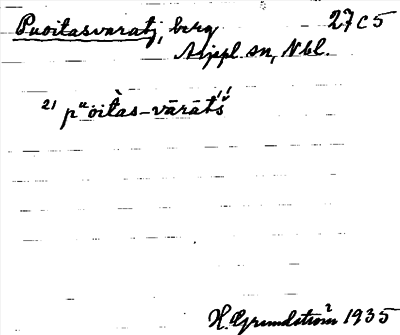 Puoitasvaratj, berg 27c5
Arjepl. sn, Nbl.
21 pᵘȯitas-vārātś́
H. Grundström 1935